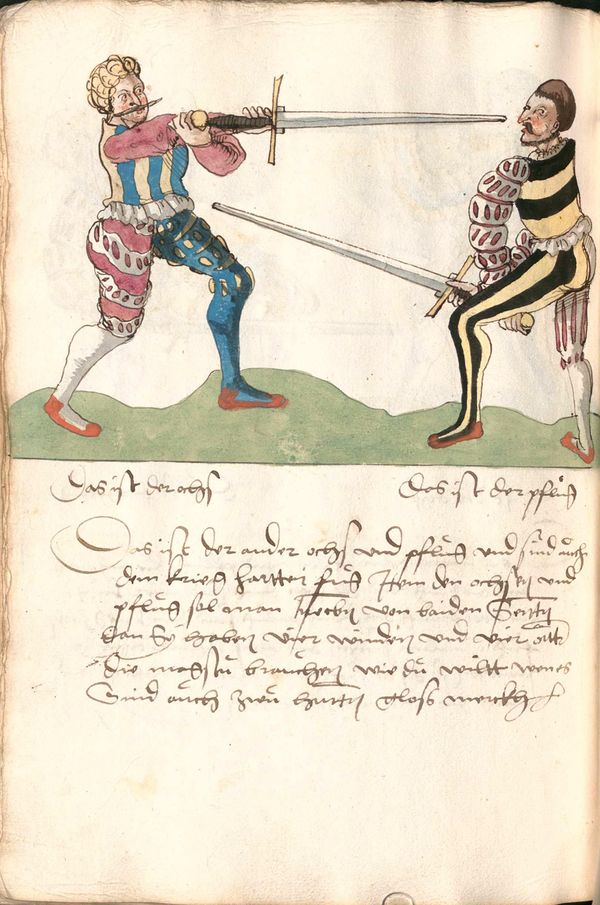 Das ist der ochs
Das ist der pflůg
Das ist der ander ochs vnd pflůg vnd sind auch
dem krieg hartter fůg Item den ochsen vnd
pflůg sol man von baiden
dan sy haben vier winden vnd vier
die magstu brauchen wie dů wiltt
Sind aůch zwů hůtten gloss merckh